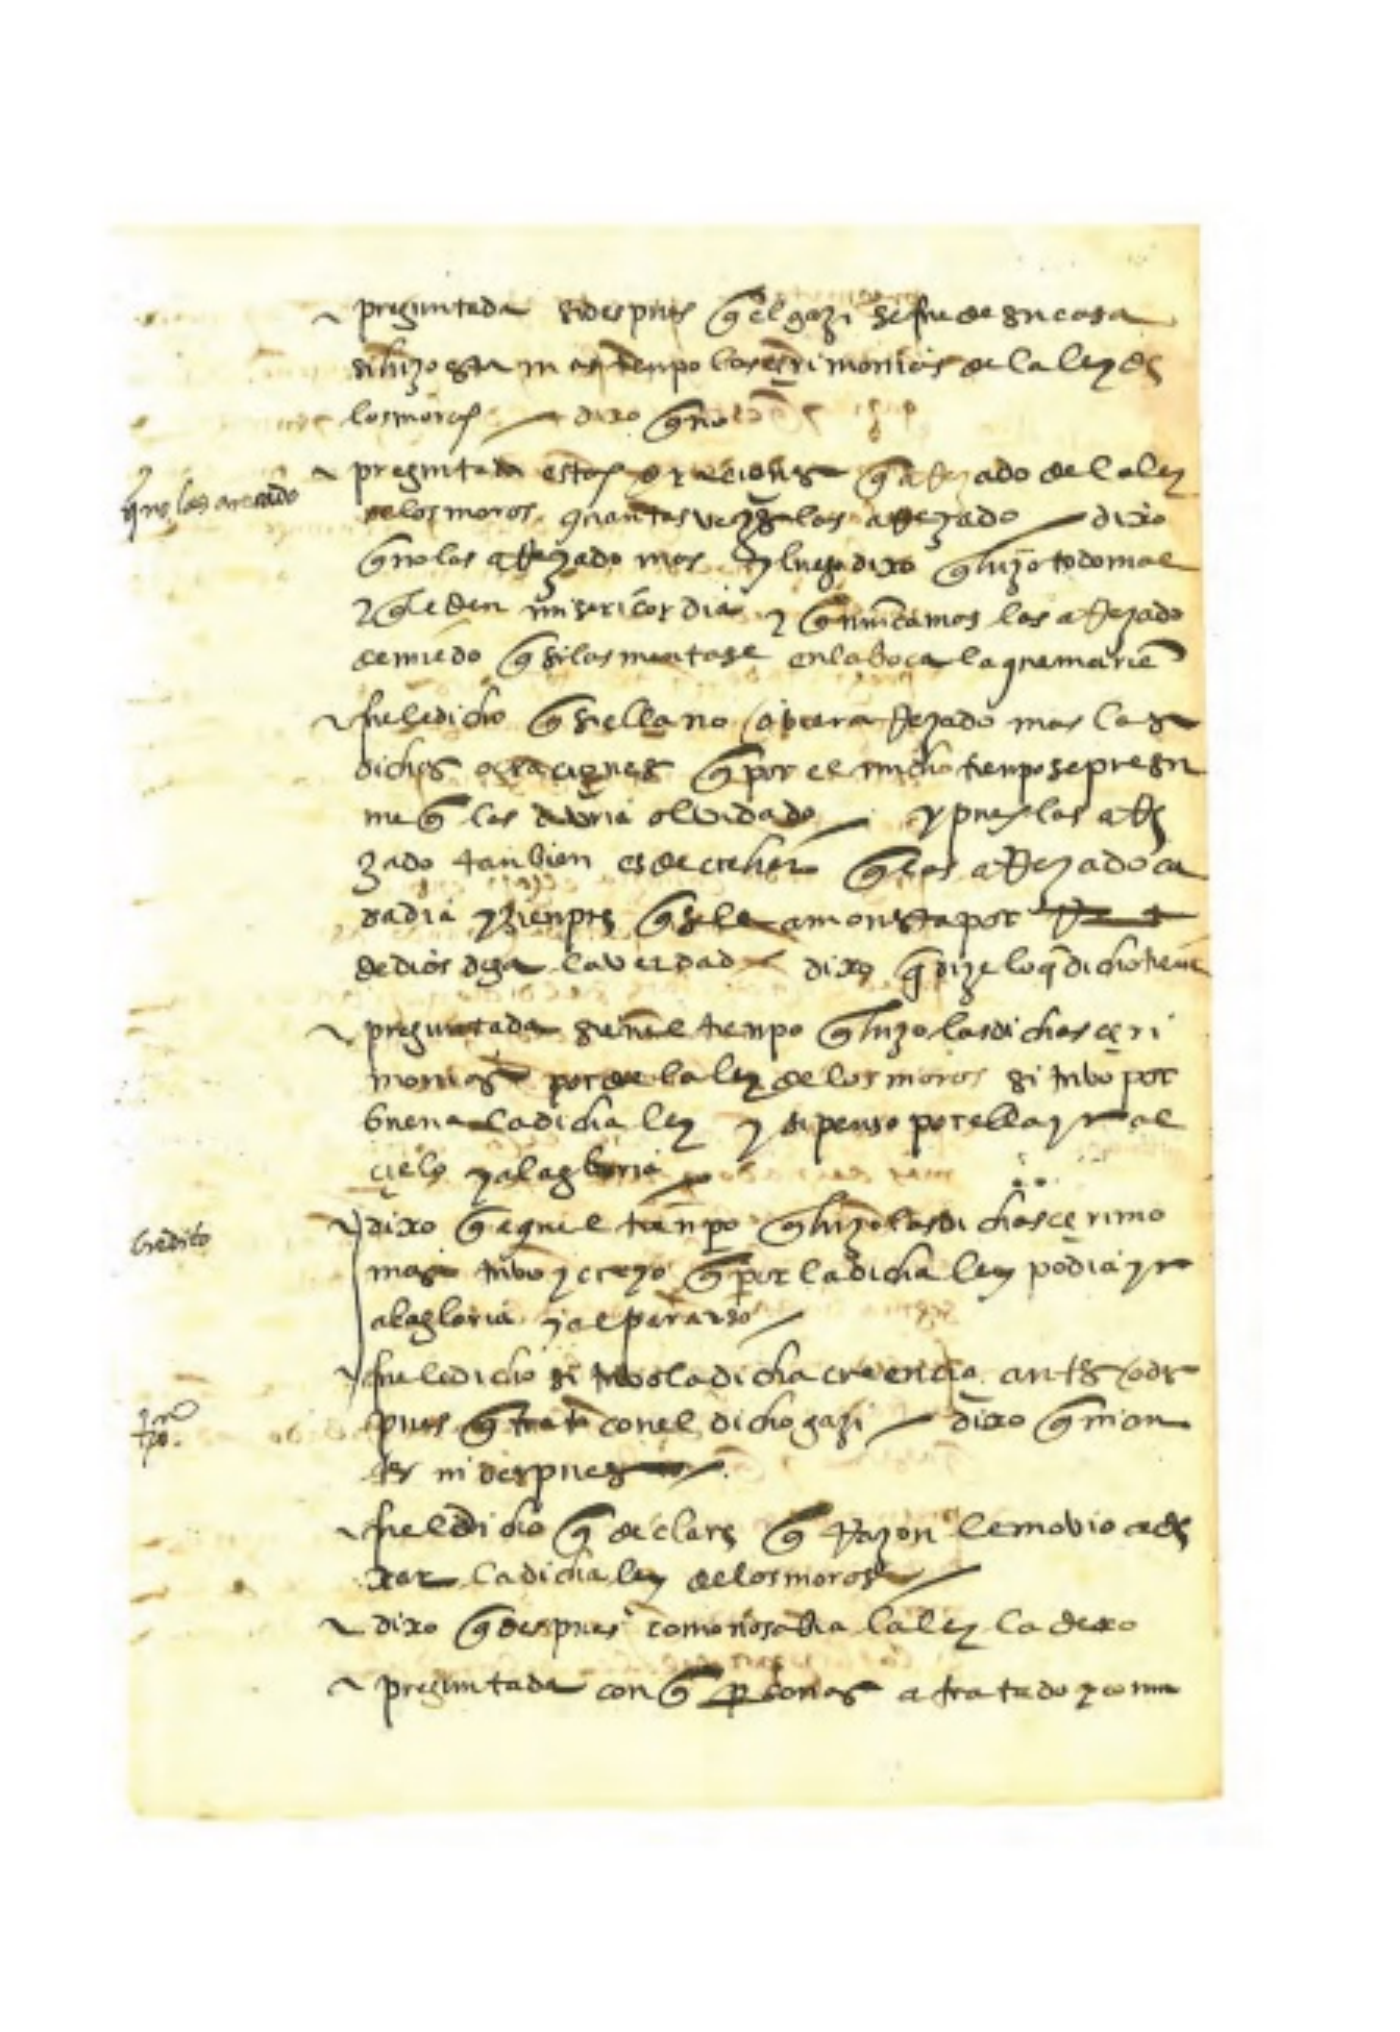 preguntada si despues q el gazi se fue de su casa
si hizo esta mas tienpo las cerimonias de la ley de
los moros dixo q no
preguntada estas oraciones q a rrezado de la ley
q no las a rrezado
de los moros quantas vezes las a rrezado dixo
q no las a rrezado mas y luego dixo q hizo todo mal
y q le den misericordia y q nunca mas las a rrezado
de miedo q si las mentase en la boca la quemarien
fuele dicho q si ella no obiera rrezado mas las
dichas oraciones q por el mucho tienpo se presu
me q las avria olvidado y pues las a rre
zado tanbien es de creher q las a rrezado ca
da dia y sienpre q se le amonesta por
de dios diga la verdad dixo q dize lo q dicho tiene
preguntada si en el tienpo q hizo las dichas ceri
monias por de la ley de los moros si tubo por
buena la dicha ley y si penso por ella yr al
cielo y a la gloria
credito
dixo q aquel tienpo q hizo las dichas cerimo
nias tubo y creyo q por la dicha ley podia yr
a la gloria y al parayso
fuele dicho si tubo la dicha creencia antes o des
pues q trata con el dicho gazi dixo q ni an
tes ni despues
fuele dicho q declare q rrazon le movio a de
xar la dicha ley de los moros
dixo q despues como no sabia la ley la dexo
preguntada con q personas a tratado y comu